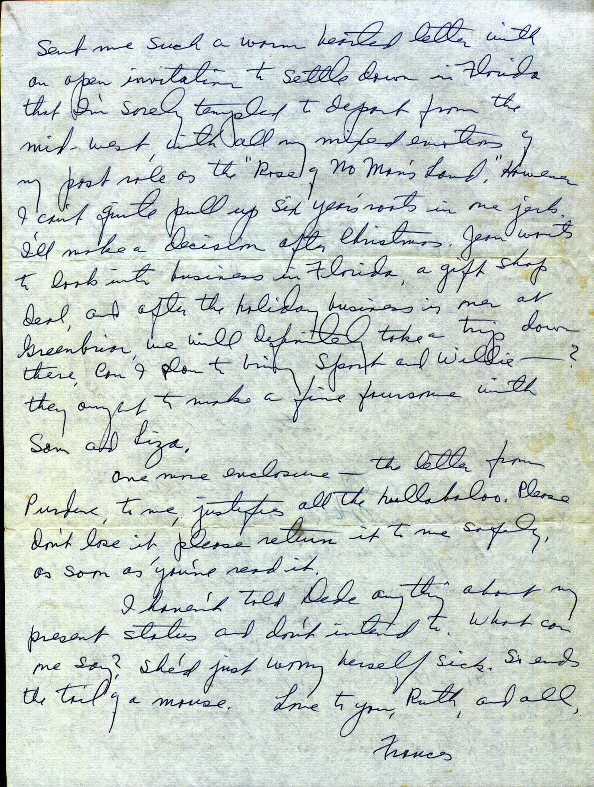 sent me such a warm hearted letter with
an open invitation to settle down in Florida
that I'm sorely tempted to depart from the
mid-west, with all my mixed emotions of
my past role as the "Rose of No Man's Land." However
I can't quite pull up six years roots in one jerk.
I'll make a decision after Christmas. Jean wants
to look into business in Florida, a gift shop
deal, and after the holiday business is over at
Greenbriar, we will definitely take a trip down
there, Can I plan to bring Sport and Willie — ?
they ought to make a fine foursome with
Sam and Liza.
One more enclosure — the letter from
Purdue, to me, justifies all the hullabaloo. Please
don't lose it, please return it to me safely,
as soon as you've read it.
I haven't told Dede anything about my
present status and don't intend to. What can
one say? She'd just worry herself sick. So ends
the tail of a mouse. Love to you, Ruth, and all,
Frances